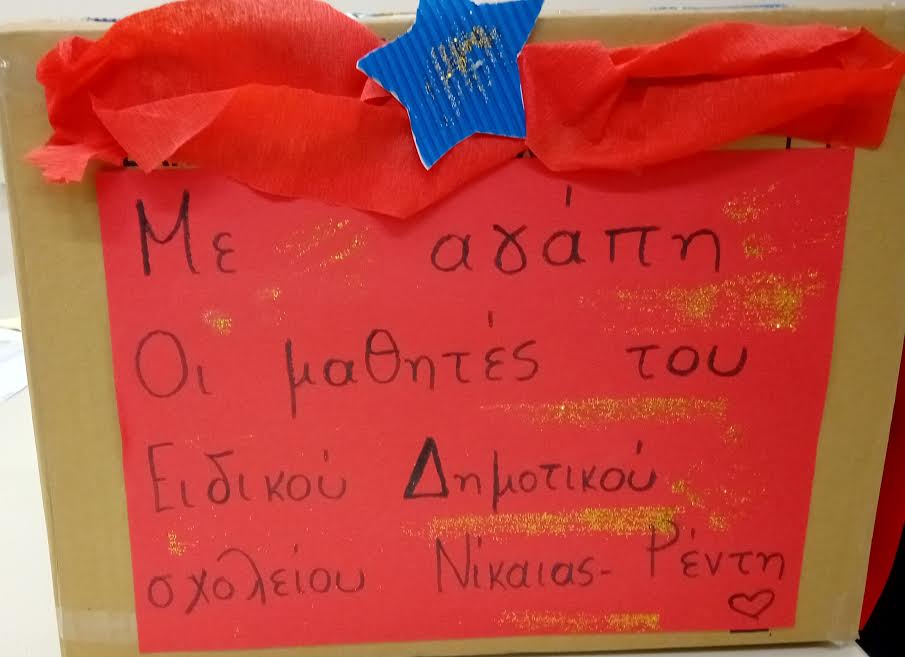 Με αγάπη
Οι μαθητές του
Ειδικού Δημοτικού
σχολείου Νίκαιας- Ρέντη